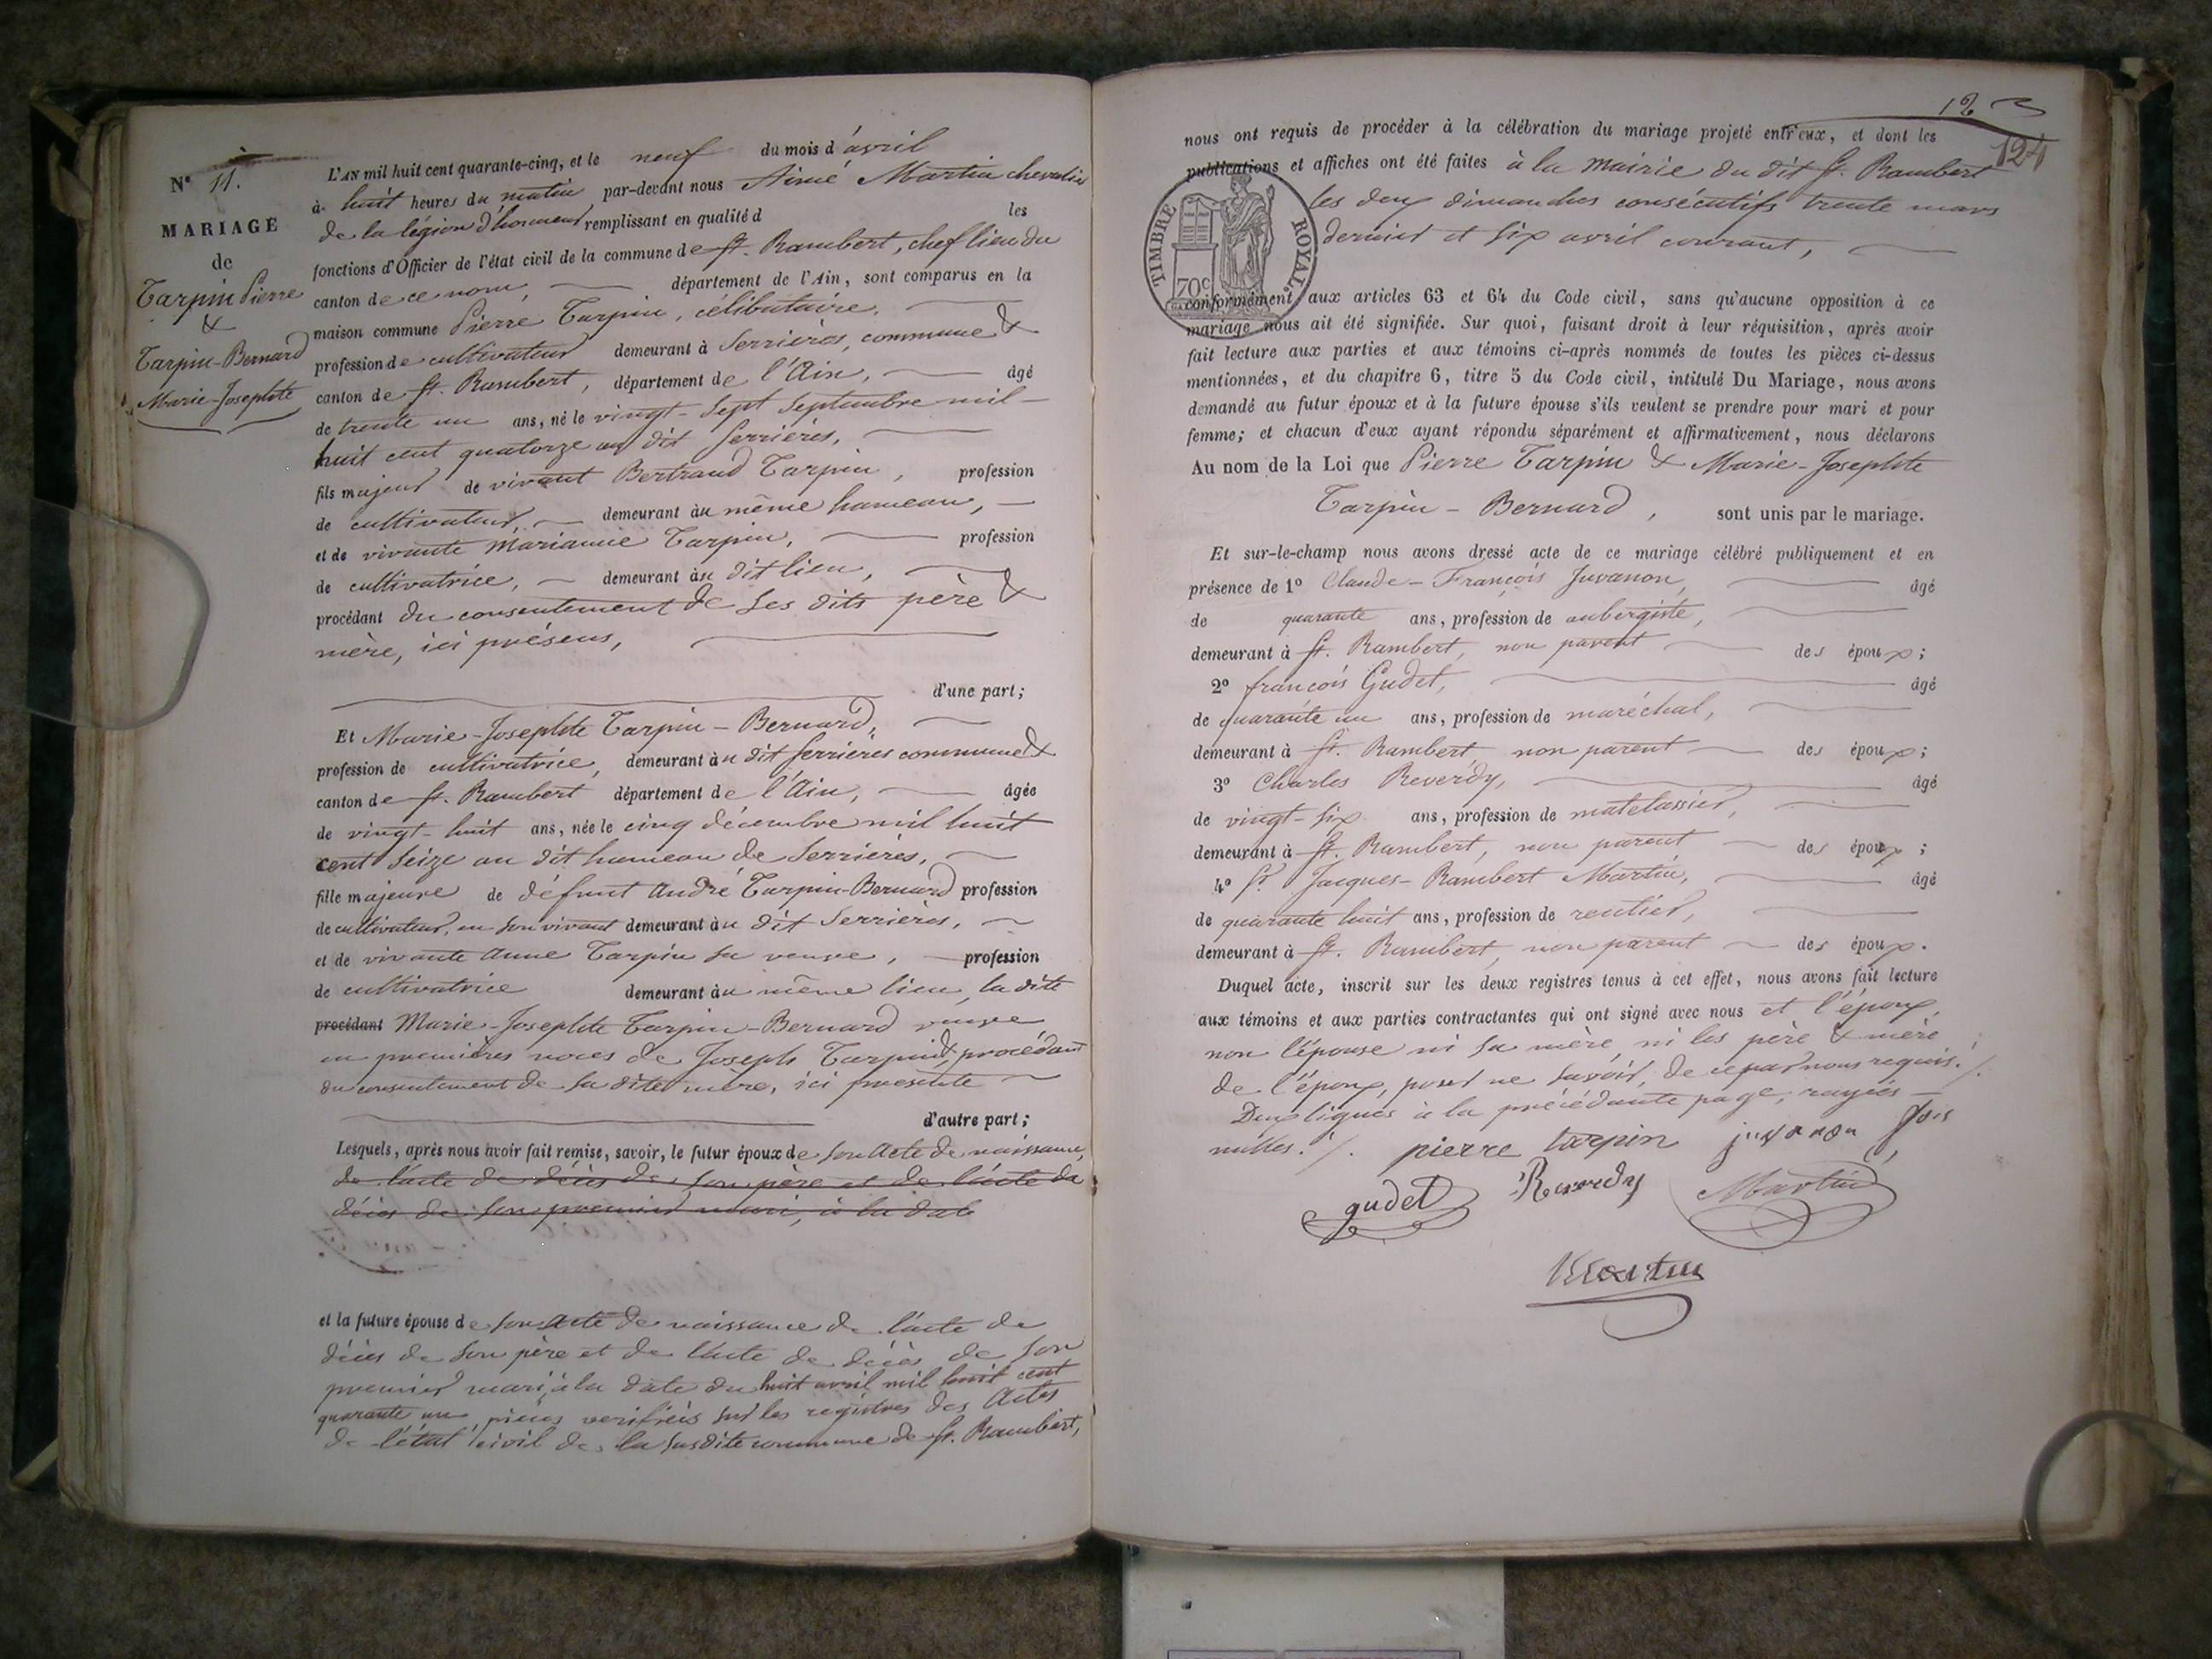 N° 11.
MARIAGE
de
Tarpin Pierre
&
Tarpin-Bernard
Marie-Josephte
L'AN mil huit cent quarante-cinq, et le neuf du mois d'avril
à huit heures du matin par-devant nous Aimé Martin chevalier
de la légion d'honneur remplissant en qualité d les
fonctions d'Officier de l'état civil de la commune de St. Rambert, chef lieu du
canton de ce nom, département de l'Ain, sont comparus en la
maison commune Pierre Tarpin, célibataire,
profession de cultivateur demeurant à Serrières, commune &
canton de St. Rambert, département de l'Ain, âgé
de trente un ans, né le vingt-sept septembre mil-
huit cent quatorze au dit Serrières,
fils majeur de vivant Bertrand Tarpin, profession
de cultivateur, demeurant au même hameau,
et de vivante Marianne Tarpin, profession
de cultivatrice, demeurant au dit lieu,
procédant du consentement de ses dits père &
mère, ici présens,
d'une part;
Et Marie-Josephte Tarpin-Bernard,
profession de cultivatrice, demeurant au dit Serrières commune &
canton de St. Rambert département de l'Ain, âgée
de vingt-huit ans, née le cinq décembre mil huit
cent seize au dit hameau de Serrières,
fille majeure de défunt André Tarpin-Bernard profession
de cultivateur, en son vivant demeurant au dit Serrières,
et de vivante Anne Tarpin sa veuve, profession
de cultivatrice demeurant au même lieu, la dite
procédant Marie-Josephte Tarpin-Bernard veuve
en premières noces de Joseph Tarpin & procédant
du consentement de sa dite mère, ici présente
d'autre part;
Lesquels, après nous avoir fait remise, savoir, le futur époux de son acte de naissance,
de l'acte de décès de son père et de l'acte de
décès de son premier mari, à la date
et la future épouse de son acte de naissance de l'acte de
décès de son père et de l'acte de décès de son
premier mari, à la date du huit avril mil huit cent
quarante un, pièces verifiées sur les registres des Actes
de l'état civil de la susdite commune de St. Rambert,
124
nous ont requis de procéder à la célébration du mariage projeté entr'eux, et dont les
publications et affiches ont été faites à la Mairie du dit St. Rambert
les deux dimanches consécutifs trente mars
dernier et six avril courant,
TIMBRE ROYAL
70c
conformément aux articles 63 et 64 du Code civil, sans qu'aucune opposition à ce
mariage nous ait été signifiée. Sur quoi, faisant droit à leur réquisition, après avoir
fait lecture aux parties et aux témoins ci-après nommés de toutes les pièces ci-dessus
mentionnées, et du chapitre 6, titre 5 du Code civil, intitulé Du Mariage, nous avons
demandé au futur époux et à la future épouse s'ils veulent se prendre pour mari et pour
femme; et chacun d'eux ayant répondu séparément et affirmativement, nous déclarons
Au nom de la Loi que Pierre Tarpin & Marie-Josephte
Tarpin-Bernard, sont unis par le mariage.
Et sur-le-champ nous avons dressé acte de ce mariage célébré publiquement et en
présence de 1° Claude-François Juvanon, âgé
de quarante ans, profession de aubergiste,
demeurant à St. Rambert, non parent des époux;
2° françois Gudet, âgé
de quarante un ans, profession de maréchal,
demeurant à St. Rambert non parent des époux;
3° Charles Reverdy, âgé
de vingt-six ans, profession de matelassier,
demeurant à St. Rambert, non parent des époux;
4° Sr. Jacques-Rambert Martin, âgé
de quarante huit ans, profession de rentier,
demeurant à St. Rambert, non parent des époux.
Duquel acte, inscrit sur les deux registres tenus à cet effet, nous avons fait lecture
aux témoins et aux parties contractantes qui ont signé avec nous et l'époux,
non l'épouse ni sa mère ni les père & mère
de l'époux, pour ne savoir, de ce par nous requis./.
Deux lignes à la précédante page, rayées
nulles./. pierre tarpin juvanon fois
gudet Reverdy Martin
Martin